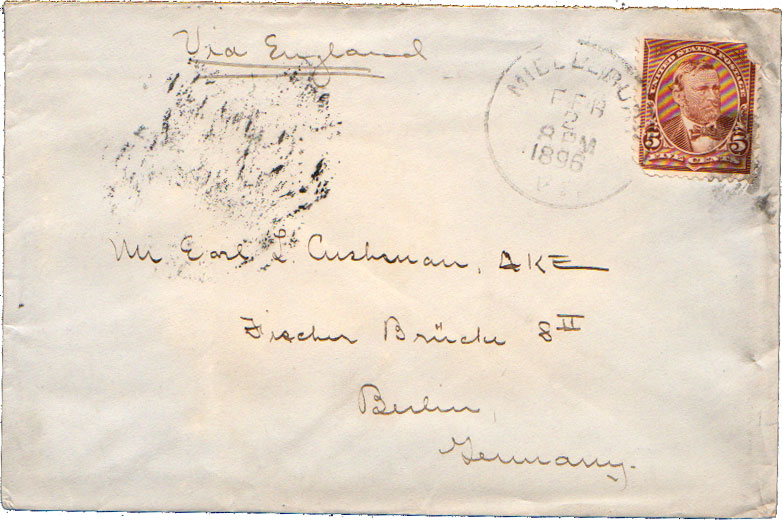 Via England
MIDDLEBURY
FEB
2
8 PM
1896
UNITED STATES POSTAGE
5 5
FIVE CENTS
Mr Earl L. Cushman, ΔKE
Fischer Brücke 8 II
Berlin,
Germany.